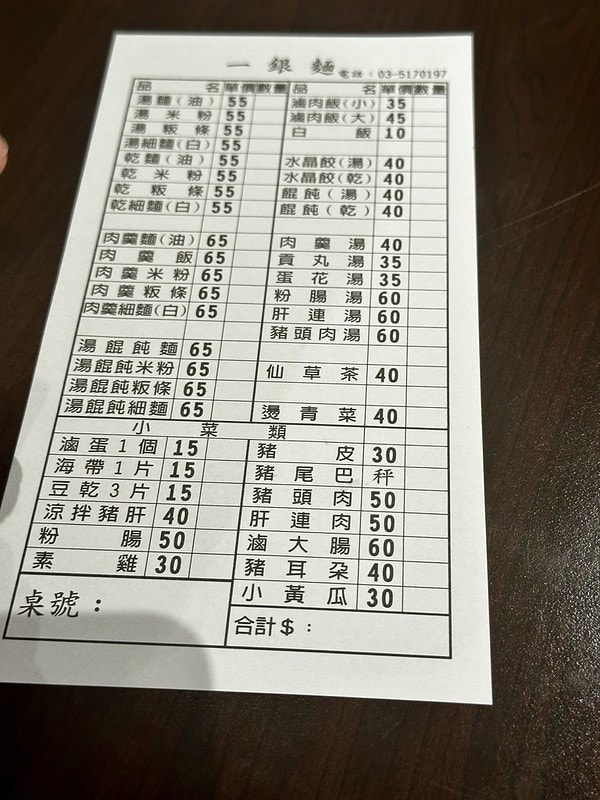 一銀麵 電話：03-5170197
品名 單價 數量
湯麵(油) 55
湯米粉 55
湯粄條 55
湯細麵(白) 55
乾麵(油) 55
乾米粉 55
乾粄條 55
乾細麵(白) 55
肉羹麵(油) 65
肉羹飯 65
肉羹米粉 65
肉羹粄條 65
肉羹細麵(白) 65
湯餛飩麵 65
湯餛飩米粉 65
湯餛飩粄條 65
湯餛飩細麵 65
品名 單價 數量
滷肉飯(小) 35
滷肉飯(大) 45
白飯 10
水晶餃(湯) 40
水晶餃(乾) 40
餛飩(湯) 40
餛飩(乾) 40
肉羹湯 40
貢丸湯 35
蛋花湯 35
粉腸湯 60
肝連湯 60
豬頭肉湯 60
仙草茶 40
燙青菜 40
小菜類
滷蛋1個 15
海帶1片 15
豆乾3片 15
涼拌豬肝 40
粉腸 50
素雞 30
豬皮 30
豬尾巴 秤
豬頭肉 50
肝連肉 50
滷大腸 60
豬耳朵 40
小黃瓜 30
桌號：
合計$：